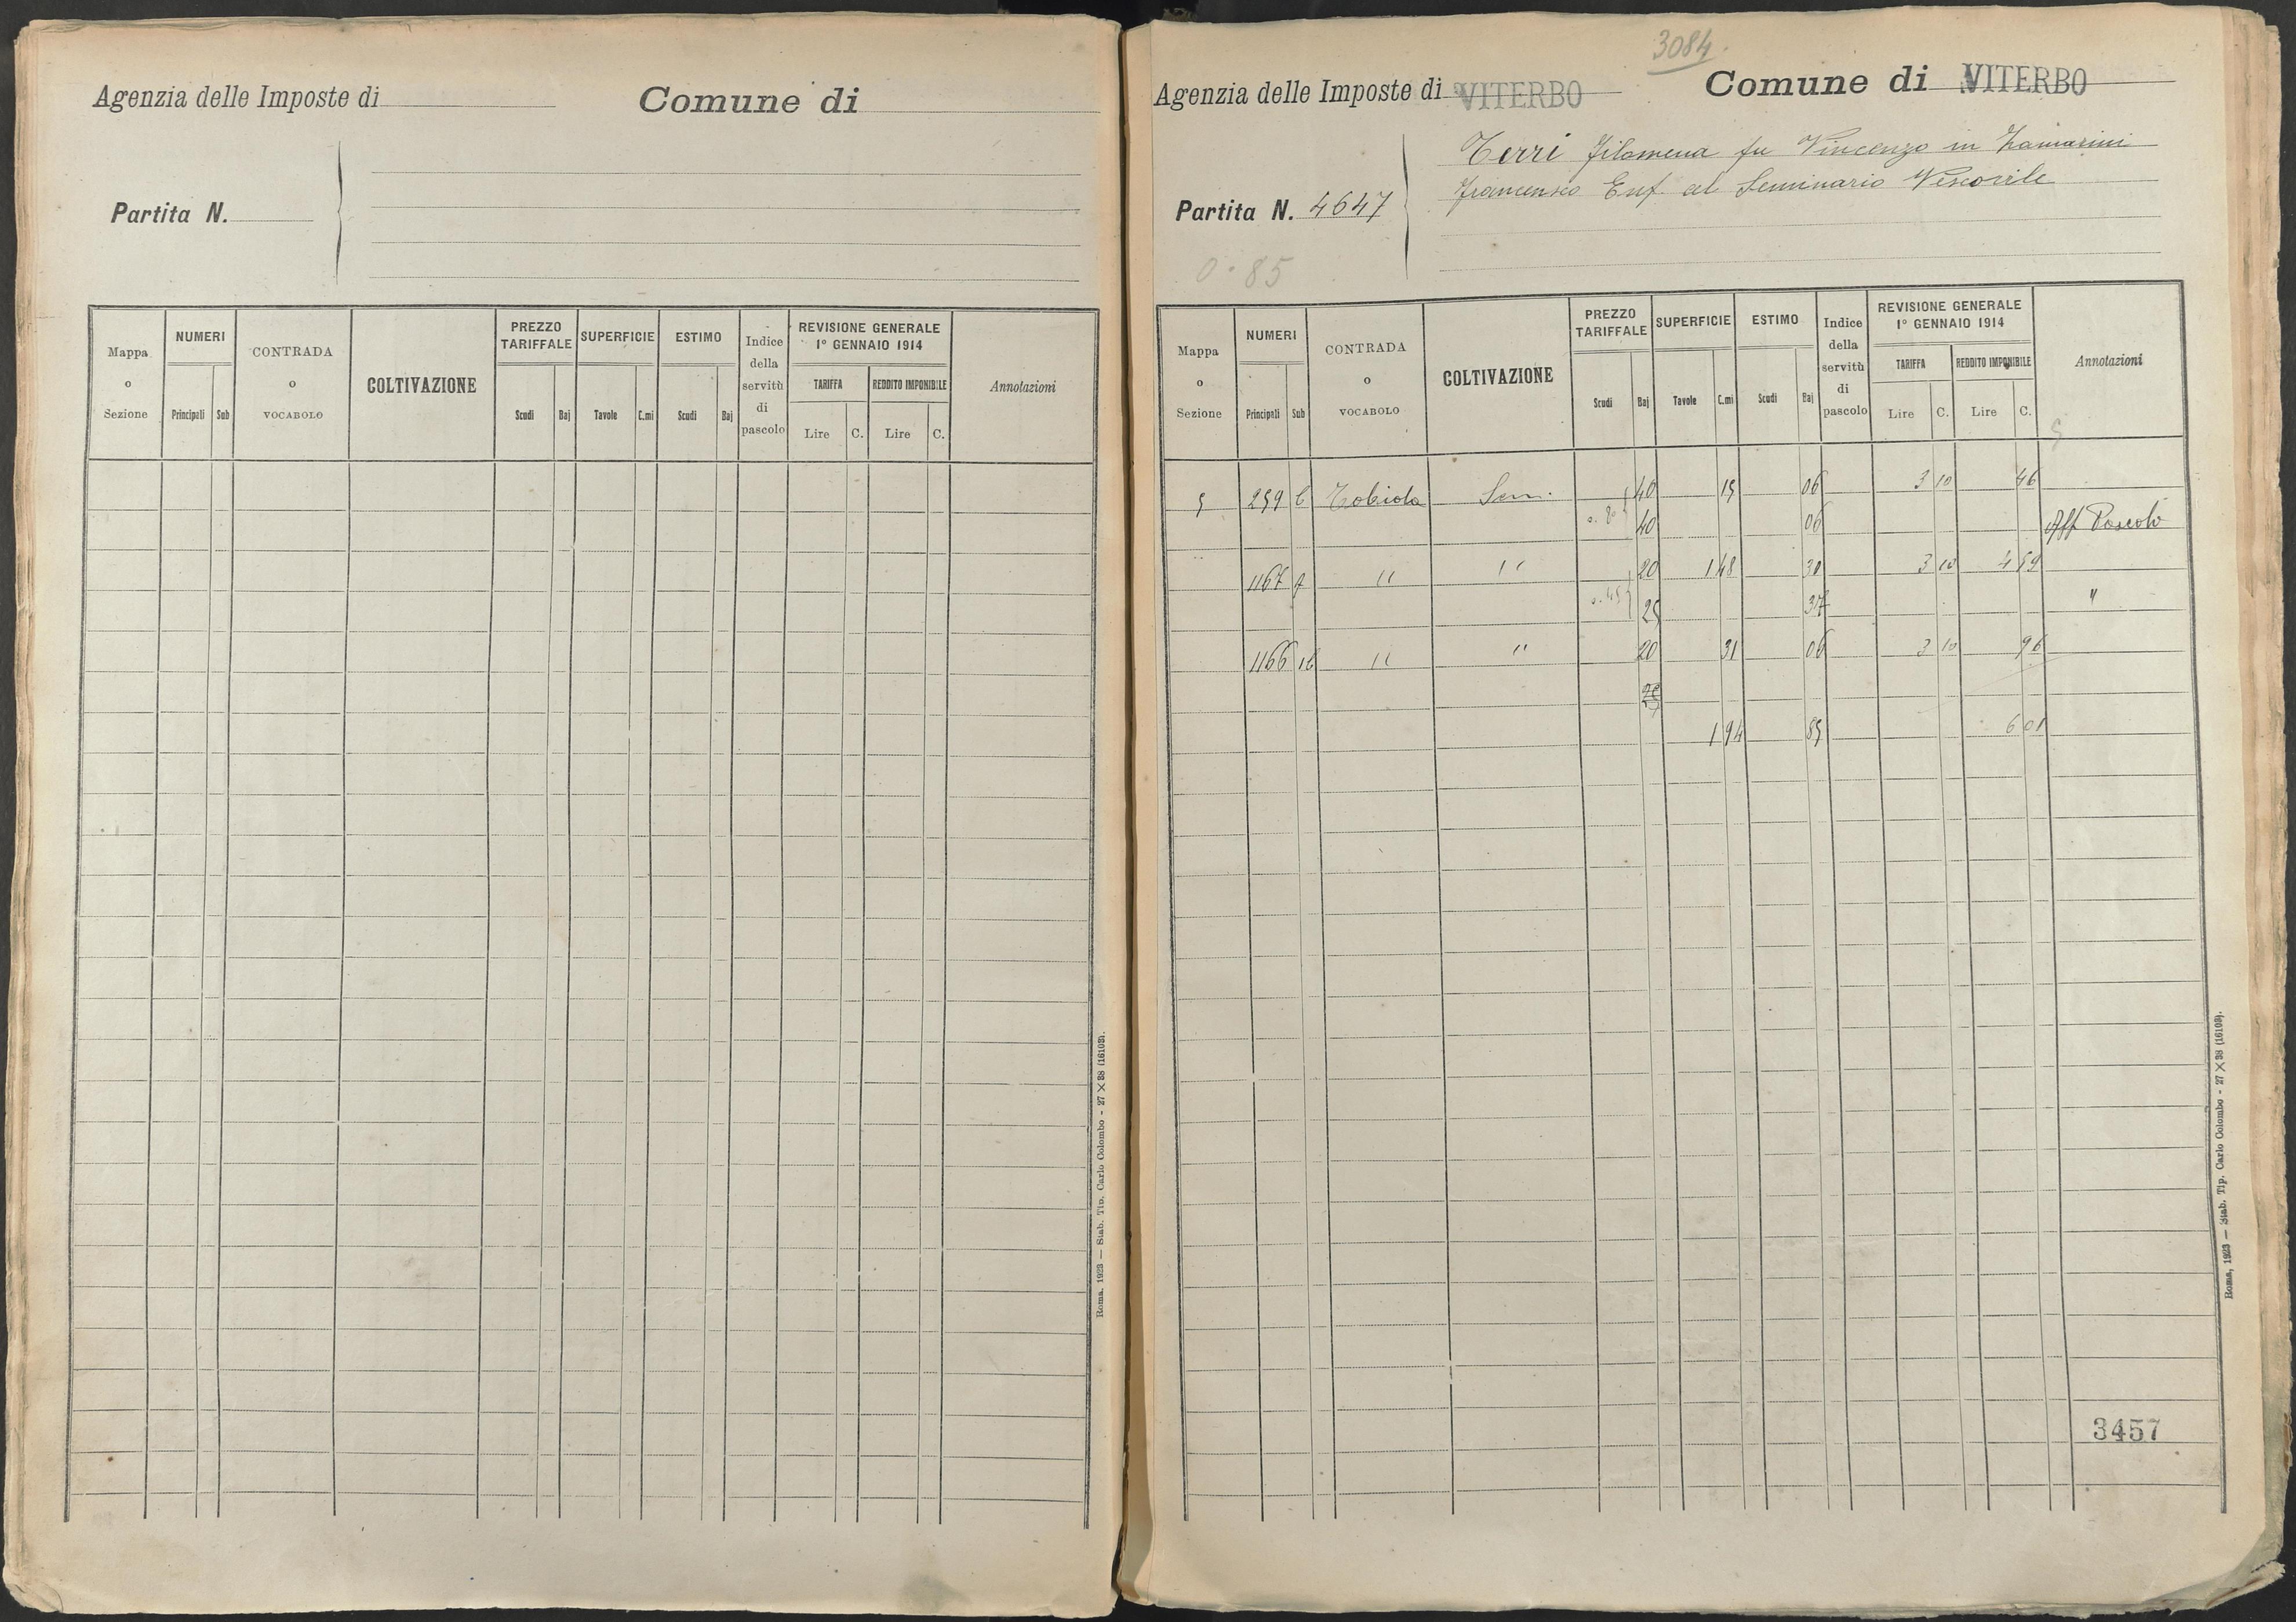 Agenzia delle Imposte di
Comune di
Partita N.
Mappa o Sezione
NUMERI
Principali Sub
CONTRADA o VOCABOLO
COLTIVAZIONE
PREZZO TARIFFALE
Scudi Baj
SUPERFICIE
Tavole C.mi
ESTIMO
Scudi Baj
Indice della servitù di pascolo
REVISIONE GENERALE 1° GENNAIO 1914
TARIFFA
Lire C.
REDDITO IMPONIBILE
Lire C.
Annotazioni
Roma, 1923 — Stab. Tip. Carlo Colombo - 27 X 38 (16103).
3084.
Agenzia delle Imposte di VITERBO
Comune di VITERBO
Terri Filomena fu Vincenzo in
Francesco Enf. al Seminario Vescovile
Partita N. 4647
0.85
Mappa o Sezione
NUMERI
Principali Sub
CONTRADA o VOCABOLO
COLTIVAZIONE
PREZZO TARIFFALE
Scudi Baj
SUPERFICIE
Tavole C.mi
ESTIMO
Scudi Baj
Indice della servitù di pascolo
REVISIONE GENERALE 1° GENNAIO 1914
TARIFFA
Lire C.
REDDITO IMPONIBILE
Lire C.
Annotazioni
5 259 b Tobiola Sem. 40 15 06 3 10 46
0.80 40 06 Aff Pascolo
1167 " " 20 1 48 30 3 10 4 59
0.45 25 37 "
1166 " " 20 31 06 3 10 96
1 94 85 6 01
3457
Roma, 1923 — Stab. Tip. Carlo Colombo - 27 X 38 (16103).